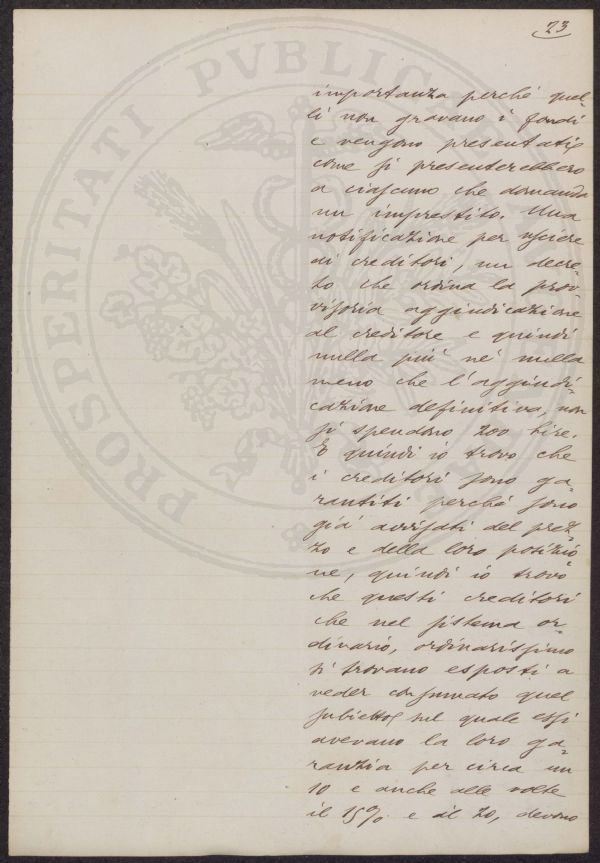 23
importanza perché quel-
li non gravano i fondi
e vengono presentati
come si presenterebbero
a ciascuno che domanda
un imprestito. Una
notificazione per usciere
ai creditori, un decre-
to che ordina la prov-
visoria aggiudicazione
al creditore e quindi
nulla più nè nulla
meno che l'aggiudi-
cazione definitiva, non
si spendono 200 lire.
E quindi io trovo che
i creditori sono ga-
rantiti perché sono
già avvisati del prez-
zo e della loro posizio-
ne, quindi io trovo
che questi creditori
che nel sistema or-
dinario, ordinarissimo
si trovano esposti a
veder consumato quel
subietto sul quale essi
avevano la loro ga-
ranzia per circa un
10 e anche alle volte
il 15% e il 20, devono
PROSPERITATI PVBLICAE